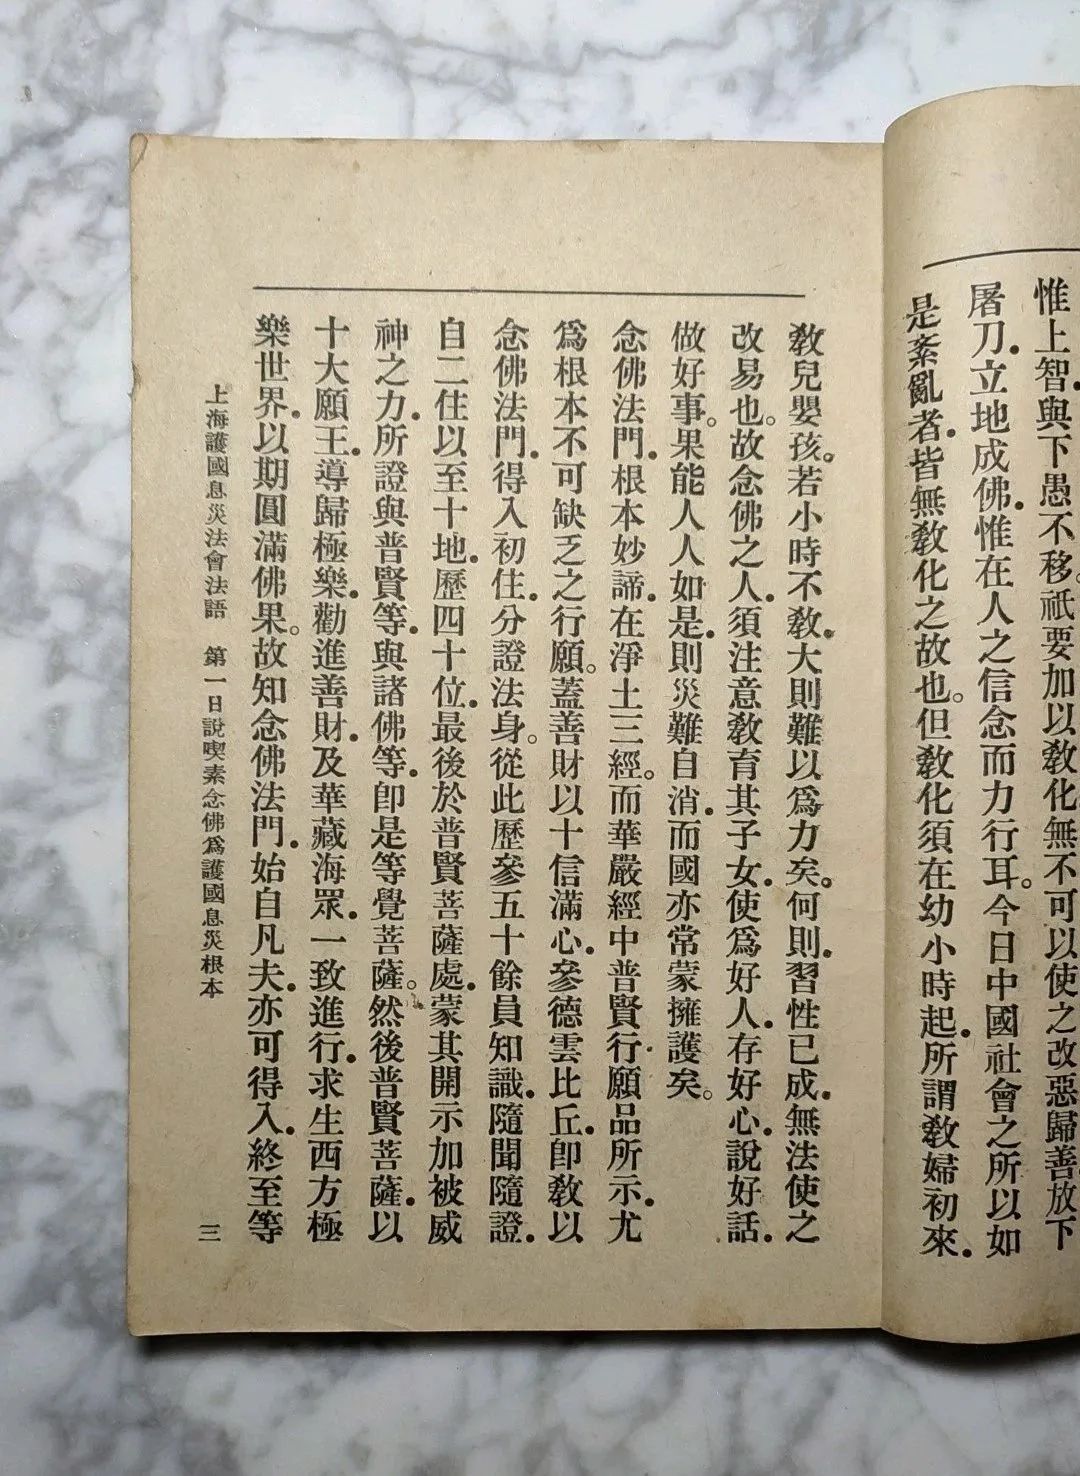 惟上智與下愚不移。祇要加以敎化無不可以使之改惡歸善放下
屠刀.立地成佛.惟在人之信念而力行耳。今日中國社會之所以如
是紊亂者.皆無敎化之故也。但敎化須在幼小時起.所謂敎婦初來.
敎兒嬰孩。若小時不敎.大則難以爲力矣。何則.習性已成.無法使之
改易也。故念佛之人.須注意敎育其子女.使爲好人.存好心.說好話.
做好事。果能人人如是.則災難自消.而國亦常蒙擁護矣。
念佛法門.根本妙諦.在淨土三經。而華嚴經中普賢行願品所示.尤
爲根本不可缺乏之行願。蓋善財以十信滿心.參德雲比丘.卽敎以
念佛法門.得入初住.分證法身。從此歷參五十餘員知識.隨聞隨證.
自二住以至十地.歷四十位.最後於普賢菩薩處.蒙其開示加被威
神之力.所證與普賢等.與諸佛等.卽是等覺菩薩。然後普賢菩薩.以
十大願王.導歸極樂.勸進善財.及華藏海眾.一致進行.求生西方極
樂世界.以期圓滿佛果。故知念佛法門.始自凡夫.亦可得入.終至等
上海護國息災法會法語　第一日說喫素念佛爲護國息災根本
三